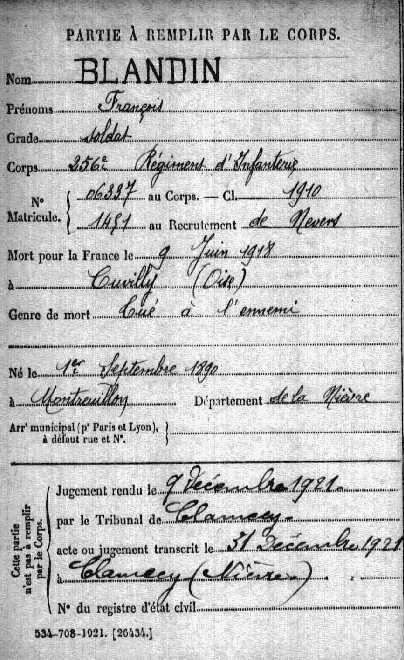 PARTIE À REMPLIR PAR LE CORPS.
Nom BLANDIN
Prénoms François
Grade soldat
Corps 256e Régiment d'Infanterie
N° Matricule. { 06337 au Corps. — Cl. 1910
1451 au Recrutement de Nevers
Mort pour la France le 9 Juin 1918
à Cuvilly (Oise)
Genre de mort Tué à l'ennemi
Né le 1er Septembre 1890
à Montreuillon Département de la Nièvre
Arrt municipal (pr Paris et Lyon), à défaut rue et N°. }
Cette partie n'est pas à remplir par le Corps.
Jugement rendu le 9 décembre 1921.
par le Tribunal de Clamecy.
acte ou jugement transcrit le 31 Décembre 1921
à Clamecy (Nièvre)
N° du registre d'état civil
534-708-1921. [26434.]